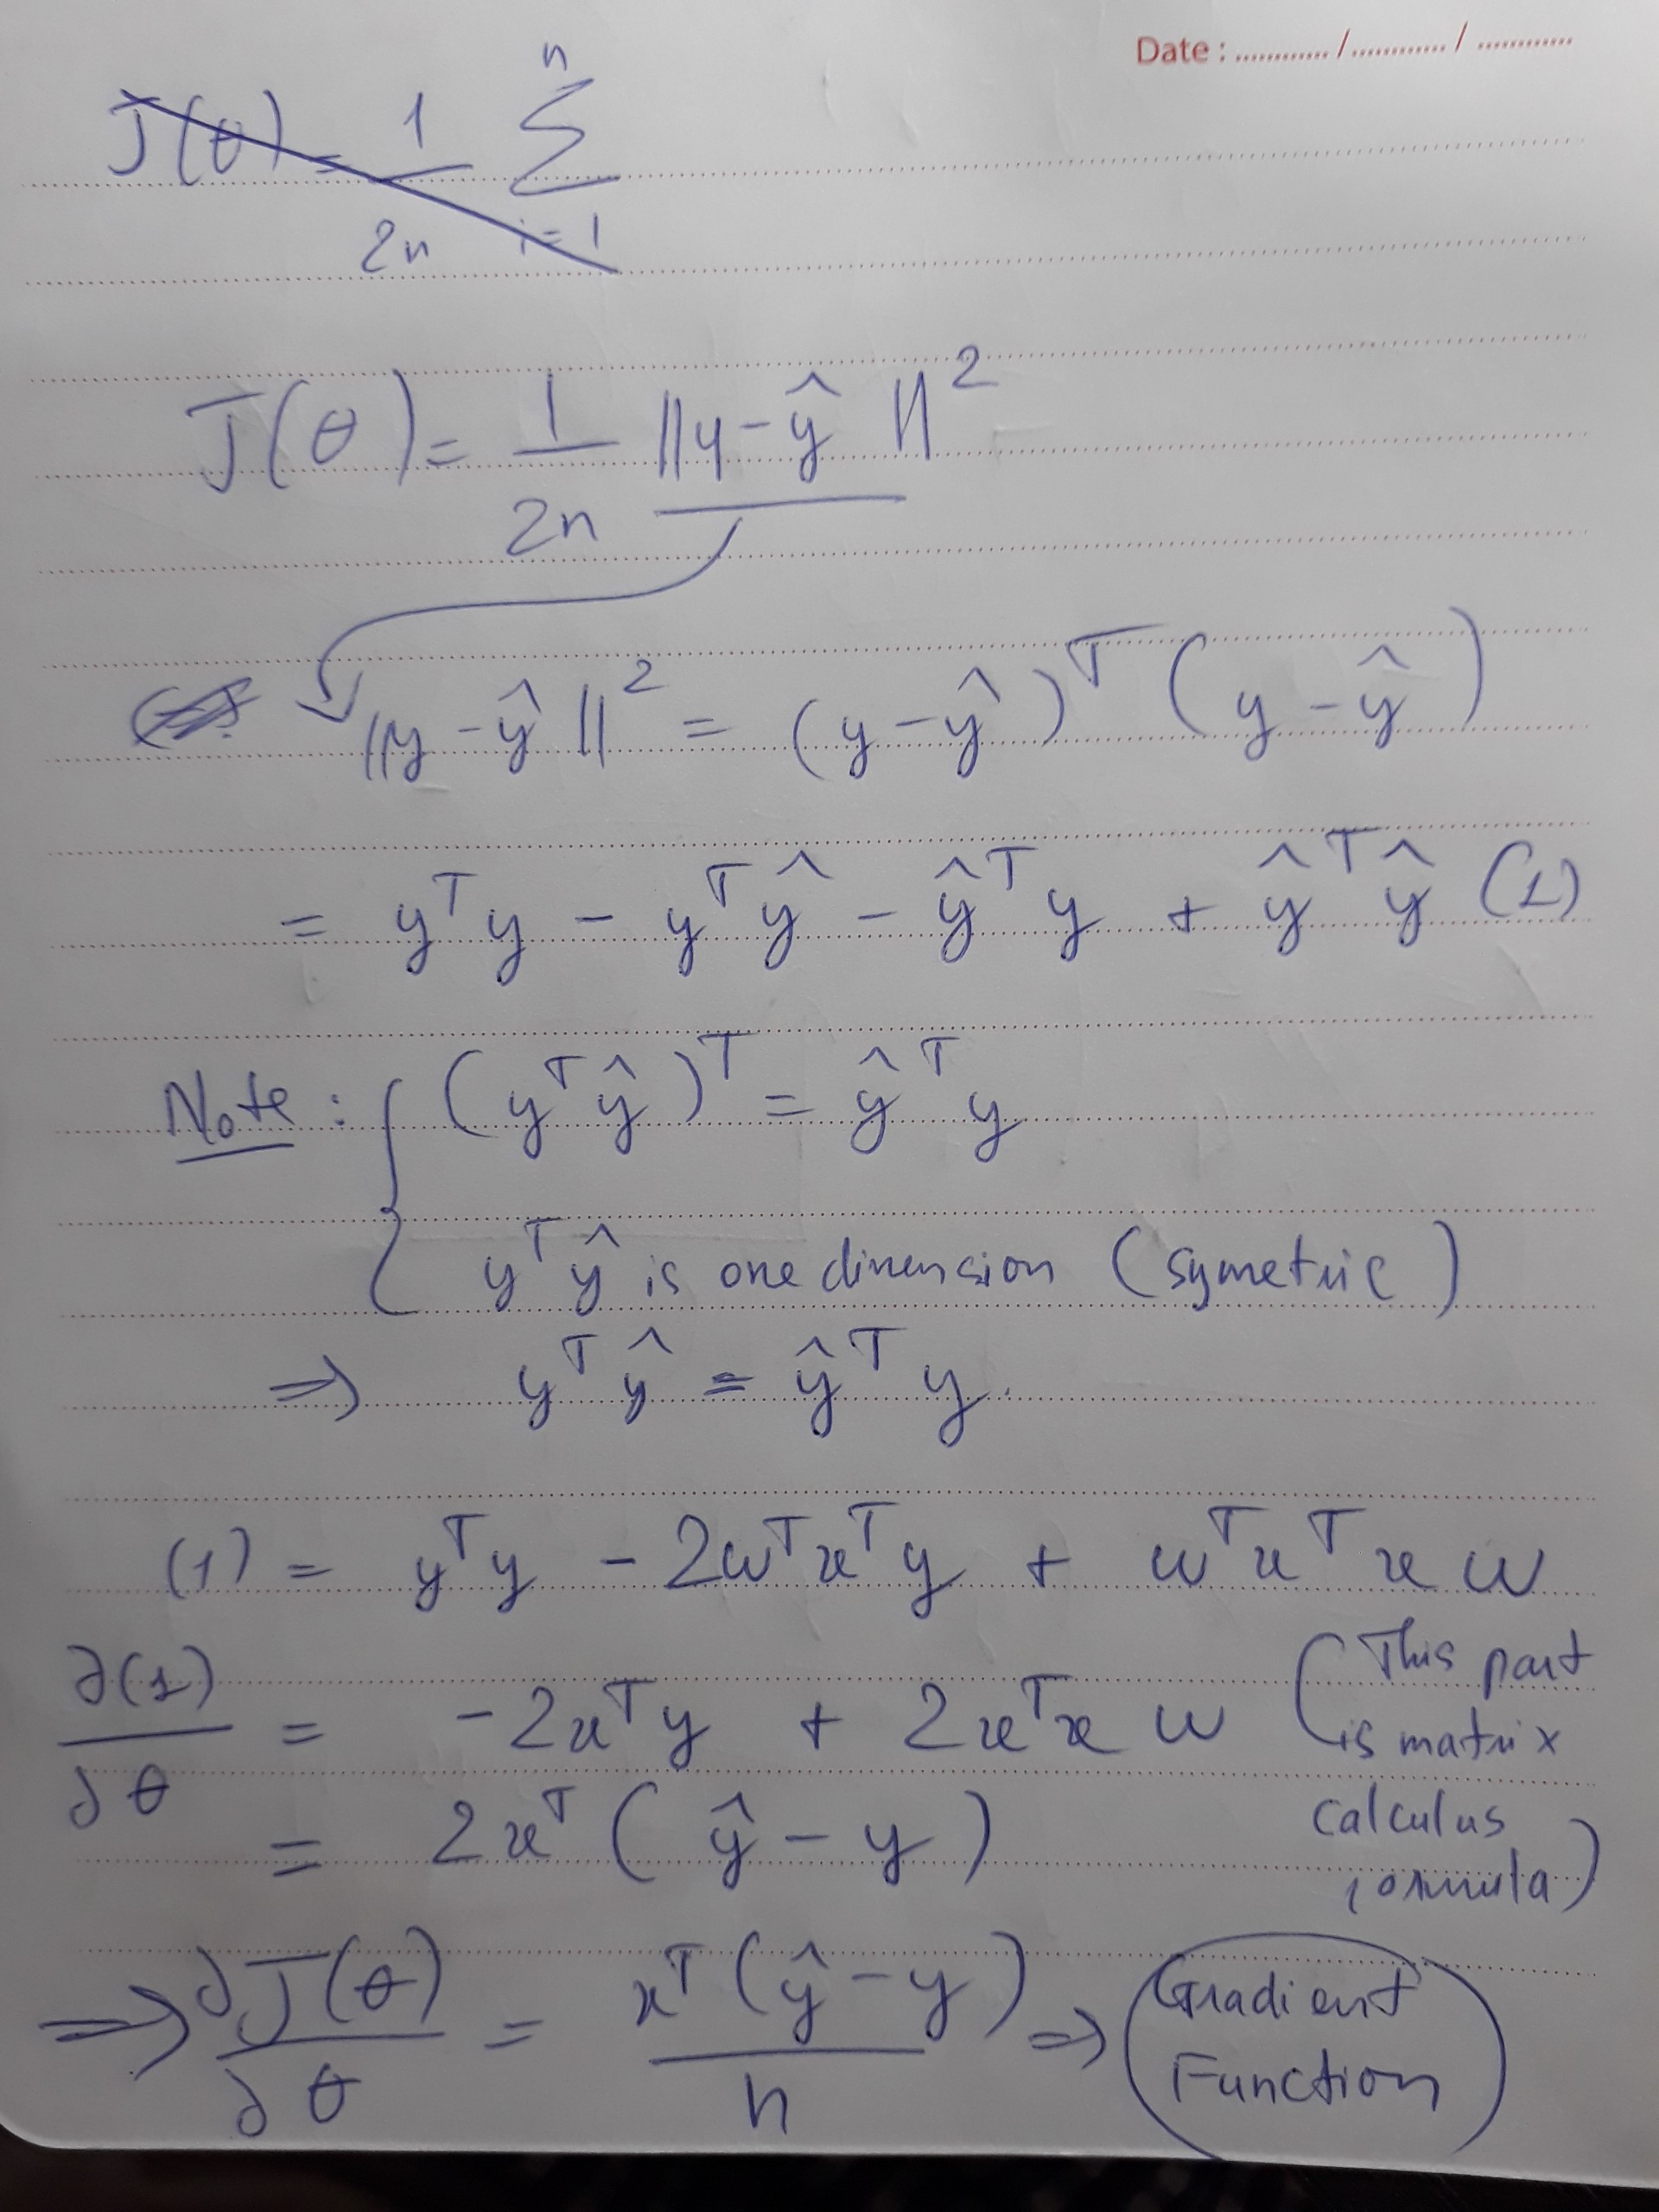 Date : ............ / ............ / ............
J(θ) = 1/2n Σ_{i=1}^{n}
J(θ) = 1/2n ||y - ŷ||²
||y - ŷ||² = (y - ŷ)ᵀ (y - ŷ)
= yᵀy - yᵀŷ - ŷᵀy + ŷᵀŷ (1)
Note : { (yᵀŷ)ᵀ = ŷᵀy
yᵀŷ is one dimension (symetric)
=> yᵀŷ = ŷᵀy.
(1) = yᵀy - 2wᵀxᵀy + wᵀxᵀxw
∂(1)/∂θ = -2xᵀy + 2xᵀxw (This part
is matrix
= 2xᵀ(ŷ - y) calculus
formula)
=> ∂J(θ)/∂θ = xᵀ(ŷ - y)/n => Gradient
Function